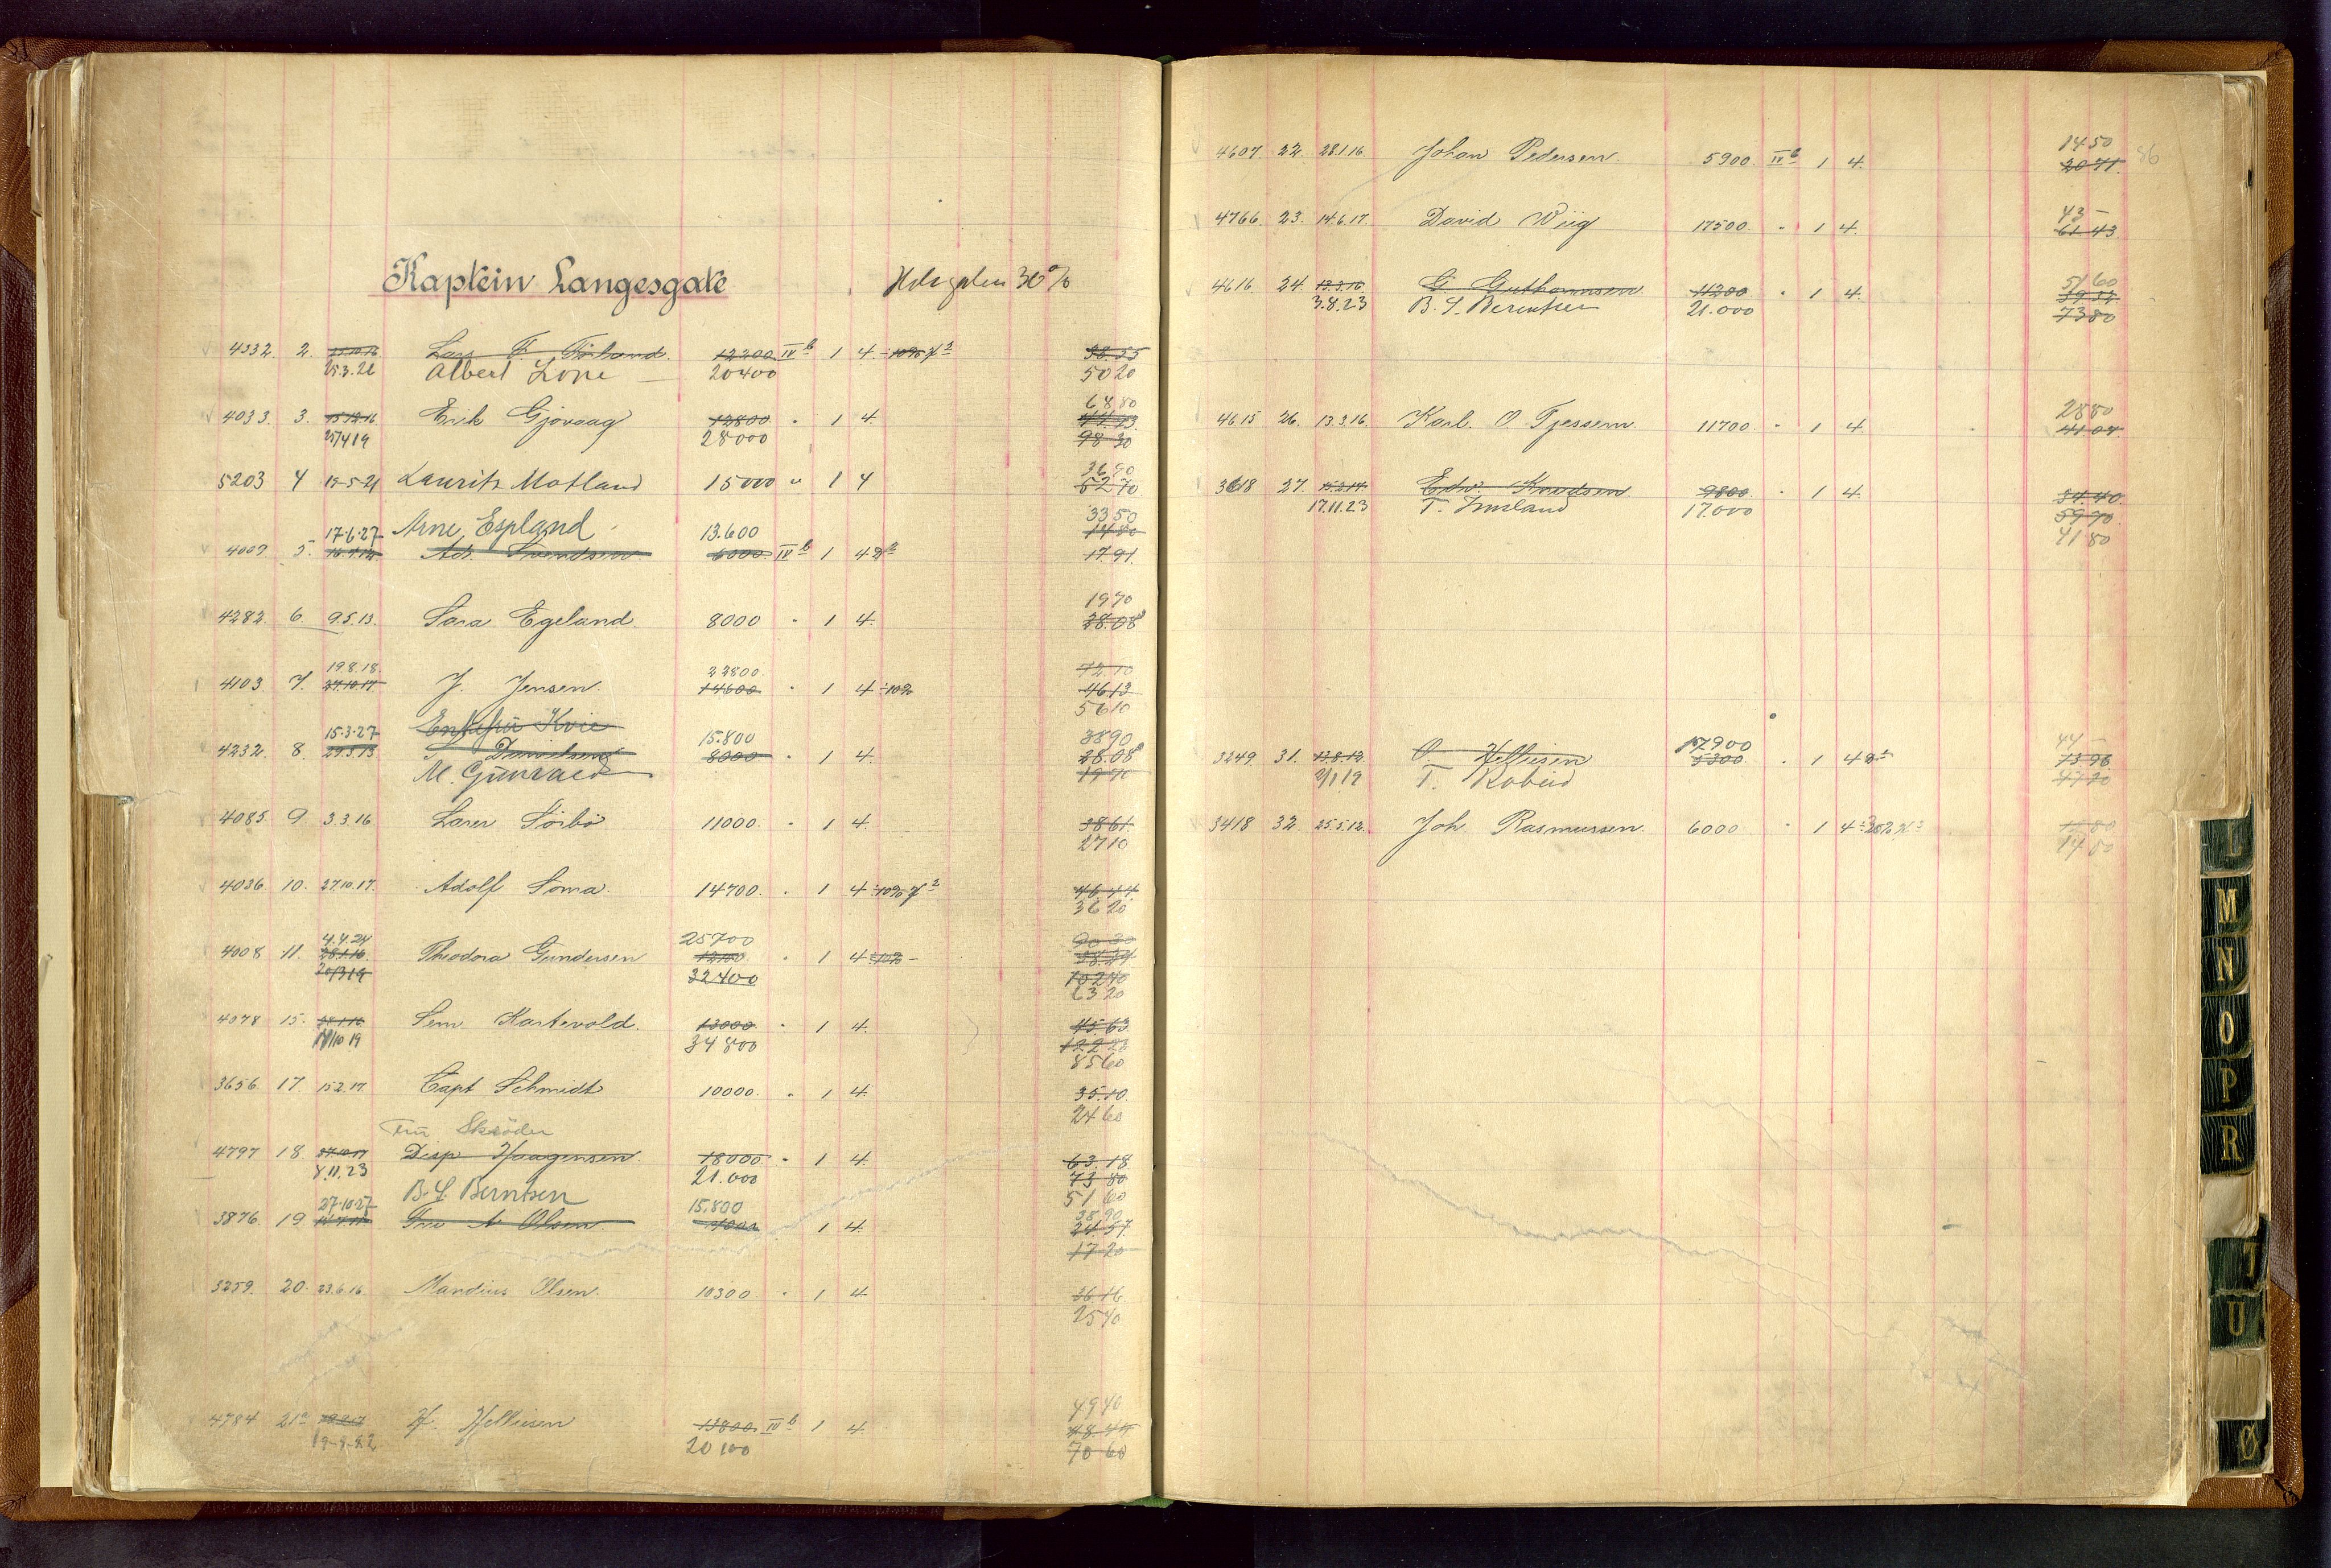 Kaptein Langesgate 30%
4332. 2. 25.10.16 Lars T. Törland. 12200 IV b 1 4. ÷10% 38.55
25.3.21 Albert Lone 20400 50 20
68 80
4033. 3. 15.12.16 Erik Gjovaag 12800 " 1 4.
25/4 19 28000 98 30
36 90
5203 4 19-5-21 Lauritz Motland 15000 " 1 4 52 70
33 50
17-6-27 Arne Espland 13.600 14 80
4009 5. Ad. Svendsen 6000 IV b 1 4 17.91
19 70
4282. 6 9.5.13. Sara Egeland. 8000 " 1 4. 28.08
19.8.18. 22800. 72 10
4103 7. 27.10.17 J. Jensen. 14600 " 1 4 ÷10% 46 13
56 10
Enkefru Kvie
15.3.27 15.800 38 90
4232 8. 29.5.13 Danielsen 8000 " 1 4. 28.08
M. Gunvald 19 70
4085 9 3.3.16 Lars Sörbö 11000. " 1 4. 38 61
27 10
4036 10. 27.10.17. Adolf Soma. 14700. " 1 4 ÷10% 46.44
36 20
4.4.24 25700 90 20
4008 11. 28.1.16. Theodora Gundersen 1 4 ÷10%
20/3 19 32400 102 40
63 20
4078 15. 28.1.16 Sem Kartevold. 13000 " 1 4. 45.63
10/10 19 34 800 122 20
85 60
3656 17. 15.2.17. Capt Schmidt 10000. " 1 4. 35.10.
24 60
Fru Skröder
4797 18. 27.10.17 Disp Haagensen. 18000 " 1 4. 63.18
8.11.23 21.000 73 80
B. S. Berntsen 51 60
27.10.27 15.800 38 90
3876. 19 Fru A. Olsen 7000 1 4. 24.57
17 20
3259. 20. 23.6.16 Mandius Olsen. 10300. " 1 4. 36 16
25 40
49 40
4784 21a H. Helliesen 13800 IV b 1 4 48.44
19-9-22 20 100 70 60
86
14 50
4607 22. 28.1.16 Johan Pedersen. 5900. IV b 1 4. 20 71.
43 –
4766. 23. 14.6.17. David Wiig 17500. " 1 4. 61 43
51 60
4616 24. 13.3.16. G. Guthormsen 11200 " 1 4. 39 32
3.8.23 B. S. Berentsen 21.000 73 80
28 80
4615 26. 13.3.16. Karl. O. Tjessem 11700 " 1 4. 41 07
3618 27. 15.2.17. Edv. Knudsen 9800 " 1 4. 34.40.
17.11.23 T. Imsland 17.000 59 70
41 80
17900 44 –
3249 31. 13.8.12 O. Helliesen 5300 " 1 4
2/1 19 T. Kobeid
3418 32 25.5.12. Joh. Rasmussen. 6000 " 1 4
L
M
N
O
P
R
T
U
Ø